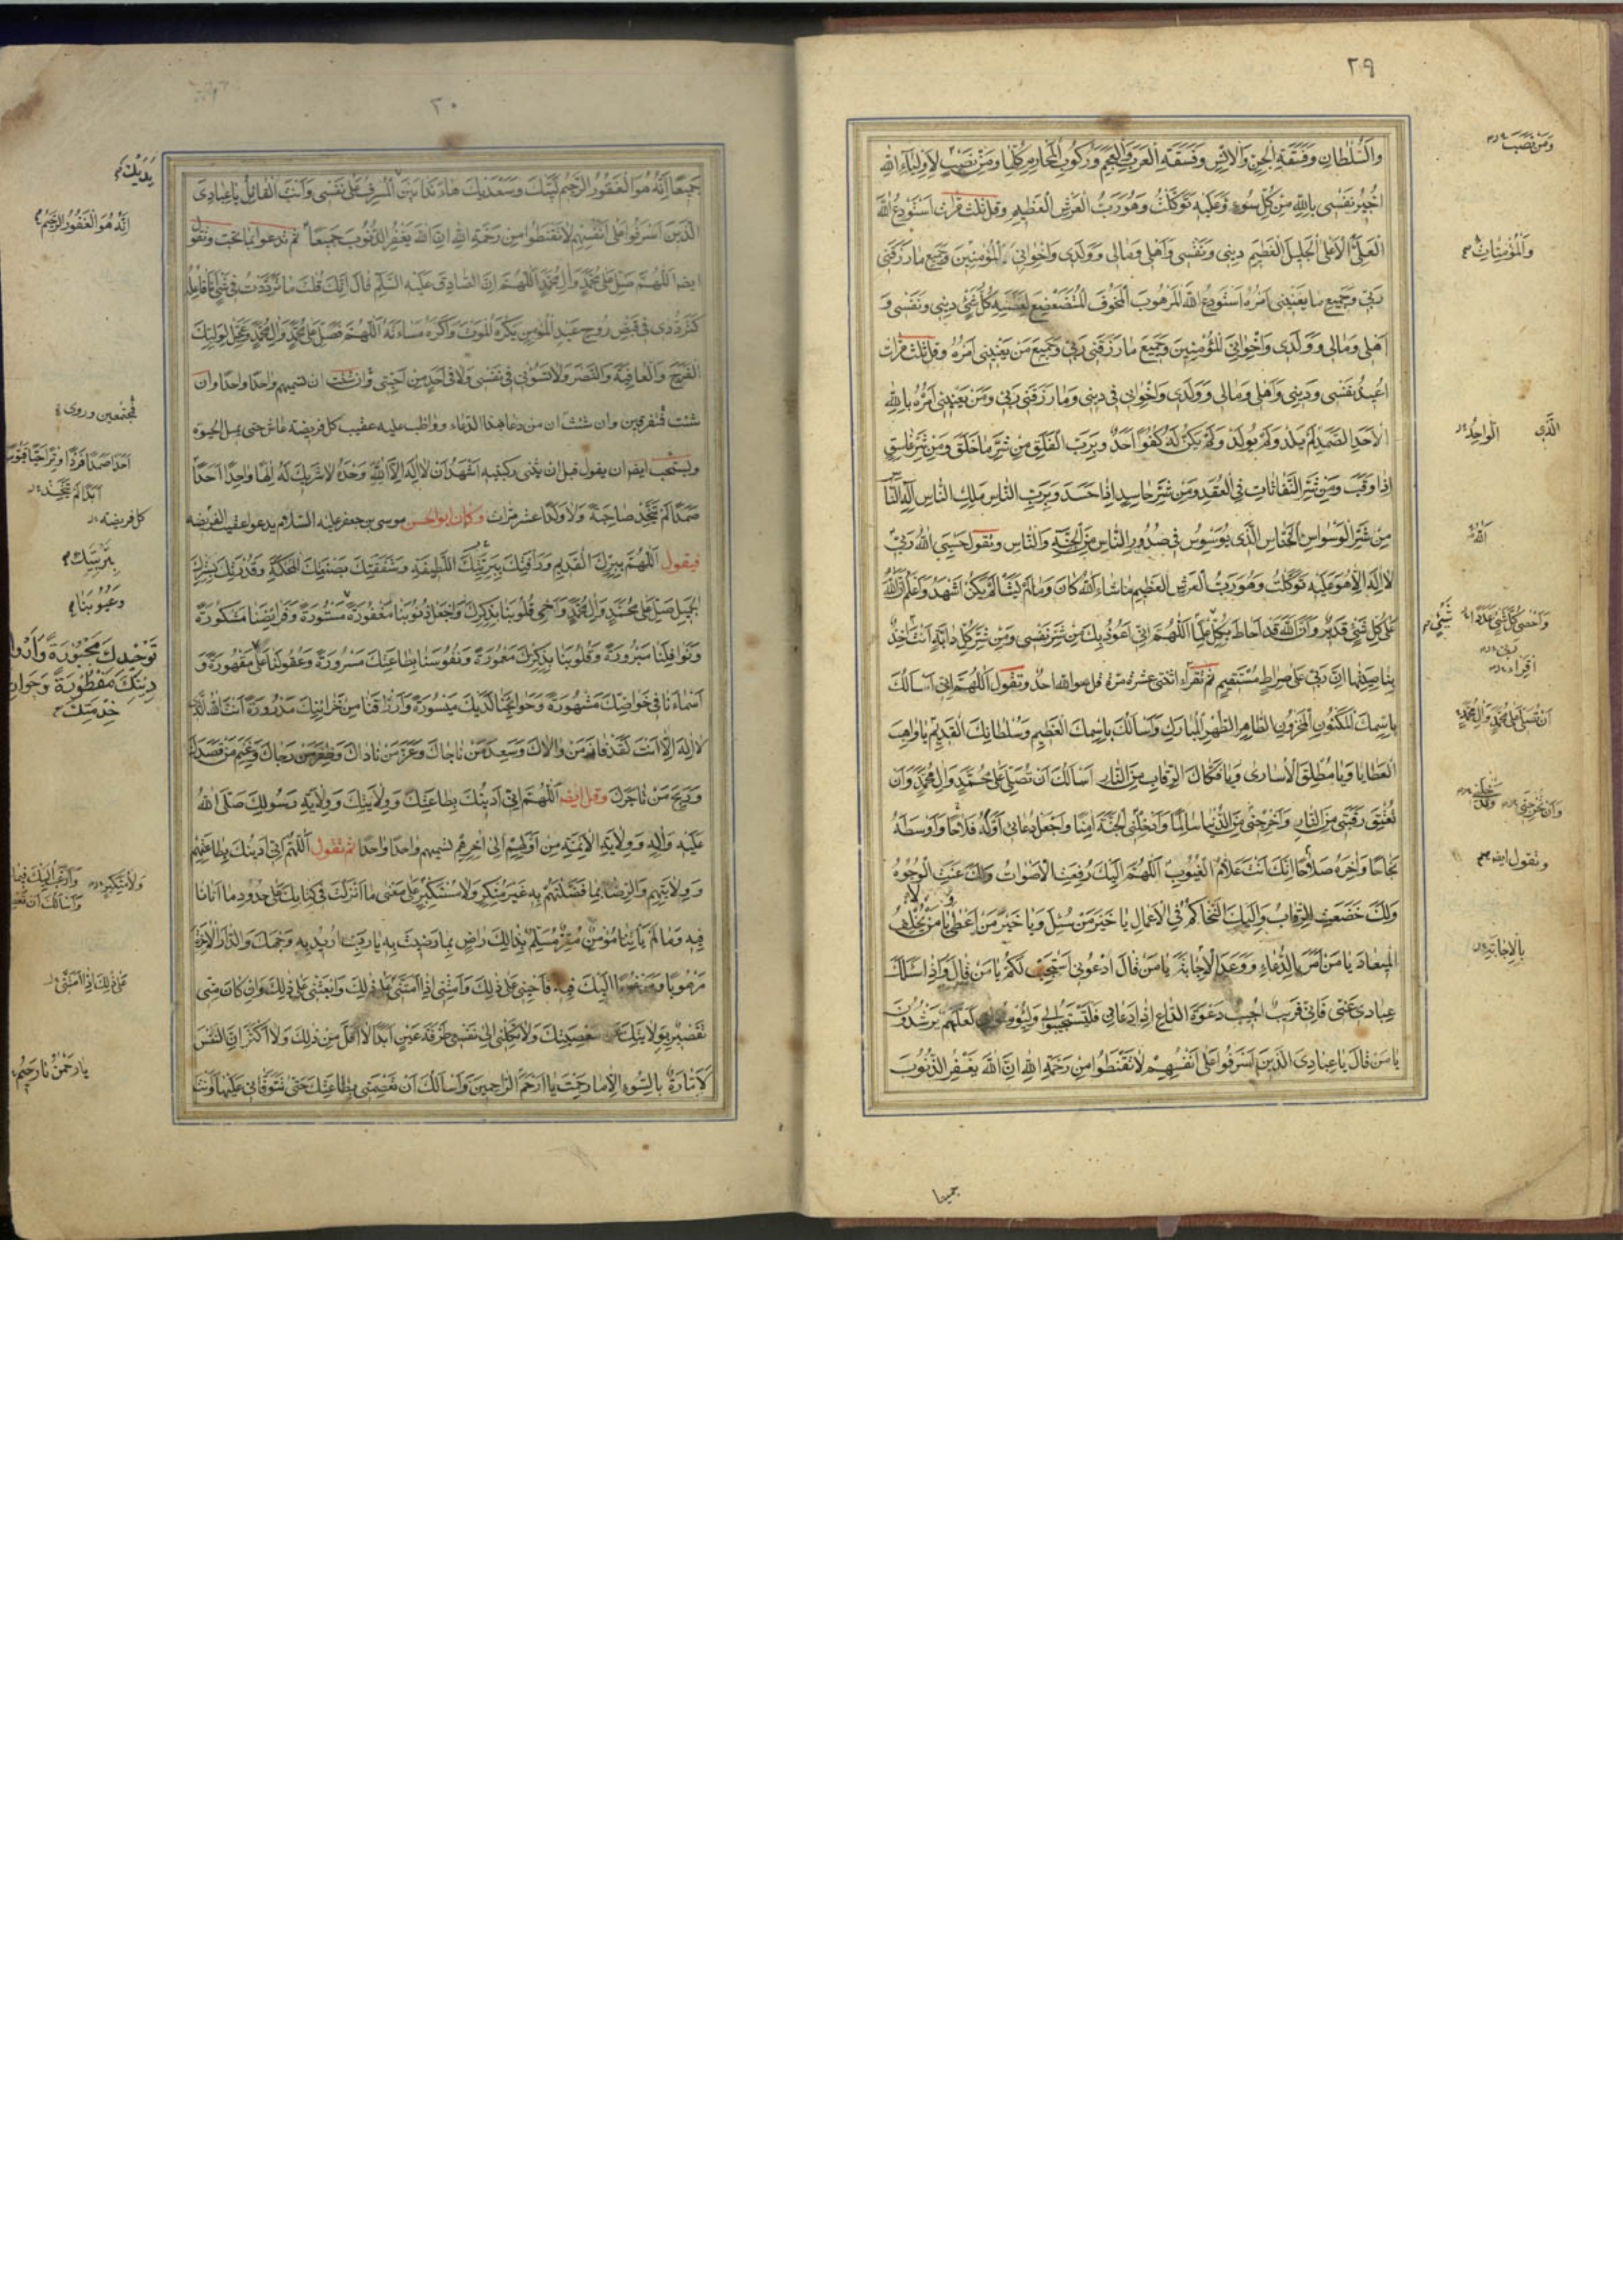 ٢٩
وَالسُّلْطَانِ وَفَسَقَةِ الْجِنِّ وَالْاِنْسِ وَفَسَقَةِ الْعَرَبِ وَالْعَجَمِ وَرُكُوبِ الْمَحَارِمِ كُلِّهَا وَمَنْ نَصَبَ لِاَوْلِيَاءِ اللهِ
اُجِيرُ نَفْسِى بِاللهِ مِنْ كُلِّ سُوءٍ وَعَلَيْهِ تَوَكَّلْتُ وَهُوَ رَبُّ الْعَرْشِ الْعَظِيمِ وقل ثلث مرات اَسْتَوْدِعُ اللهَ
الْعَلِىَّ الْاَعْلَى الْجَلِيلَ الْعَظِيمَ دِينِى وَنَفْسِى وَاَهْلِى وَمَالِى وَوَلَدِى وَاِخْوَانِى الْمُؤْمِنِينَ وَجَمِيعَ مَا رَزَقَنِى
رَبِّى وَجَمِيعَ مَا يَعْنِينِى اَمْرُهُ اَسْتَوْدِعُ اللهَ الْمَرْهُوبَ الْمَخُوفَ الْمُتَضَعْضِعَ لِعَظَمَتِهِ كُلُّ شَىْءٍ دِينِى وَنَفْسِى وَ
اَهْلِى وَمَالِى وَوَلَدِى وَاِخْوَانِىَ الْمُؤْمِنِينَ وَجَمِيعَ مَا رَزَقَنِى رَبِّى وَجَمِيعَ مَنْ يَعْنِينِى اَمْرُهُ وقل ثلث مرات
اُعِيذُ نَفْسِى وَدِينِى وَاَهْلِى وَمَالِى وَوَلَدِى وَاِخْوَانِى فِى دِينِى وَمَا رَزَقَنِى رَبِّى وَمَنْ يَعْنِينِى اَمْرُهُ بِاللهِ
الْاَحَدِ الصَّمَدِ لَمْ يَلِدْ وَلَمْ يُولَدْ وَلَمْ يَكُنْ لَهُ كُفُوًا اَحَدٌ وَبِرَبِّ الْفَلَقِ مِنْ شَرِّ مَا خَلَقَ وَمِنْ شَرِّ غَاسِقٍ
اِذَا وَقَبَ وَمِنْ شَرِّ النَّفَّاثَاتِ فِى الْعُقَدِ وَمِنْ شَرِّ حَاسِدٍ اِذَا حَسَدَ وَبِرَبِّ النَّاسِ مَلِكِ النَّاسِ اِلٰهِ النَّاسِ
مِنْ شَرِّ الْوَسْوَاسِ الْخَنَّاسِ الَّذِى يُوَسْوِسُ فِى صُدُورِ النَّاسِ مِنَ الْجِنَّةِ وَالنَّاسِ وتقول حَسْبِىَ اللهُ رَبِّىَ
لَا اِلٰهَ اِلَّا هُوَ عَلَيْهِ تَوَكَّلْتُ وَهُوَ رَبُّ الْعَرْشِ الْعَظِيمِ مَا شَاءَ اللهُ كَانَ وَمَا لَمْ يَشَأْ لَمْ يَكُنْ اَشْهَدُ وَاَعْلَمُ اَنَّ اللهَ
عَلَى كُلِّ شَىْءٍ قَدِيرٌ وَاَنَّ اللهَ قَدْ اَحَاطَ بِكُلِّ عِلْمًا اَللّٰهُمَّ اِنِّى اَعُوذُ بِكَ مِنْ شَرِّ نَفْسِى وَمِنْ شَرِّ كُلِّ دَابَّةٍ اَنْتَ اٰخِذٌ
بِنَاصِيَتِهَا اِنَّ رَبِّى عَلَى صِرَاطٍ مُسْتَقِيمٍ ثم تقراء اثنتى عشرة مرة قل هو الله احد وتقول اَللّٰهُمَّ اِنِّى اَسْاَلُكَ
بِاسْمِكَ الْمَكْنُونِ الْمَخْزُونِ الطَّاهِرِ الطُّهْرِ الْمُبَارَكِ وَاَسْاَلُكَ بِاسْمِكَ الْعَظِيمِ وَسُلْطَانِكَ الْقَدِيمِ يَا وَاهِبَ
الْعَطَايَا وَيَا مُطْلِقَ الْاُسَارَى وَيَا فَكَّاكَ الرِّقَابِ مِنَ النَّارِ اَسْاَلُكَ اَنْ تُصَلِّىَ عَلَى مُحَمَّدٍ وَاٰلِ مُحَمَّدٍ وَاَنْ
تُعْتِقَ رَقَبَتِى مِنَ النَّارِ وَاَخْرِجْنِى مِنَ الدُّنْيَا سَالِمًا وَاَدْخِلْنِى الْجَنَّةَ اٰمِنًا وَاجْعَلْ دُعَائِى اَوَّلَهُ فَلَاحًا وَاَوْسَطَهُ
نَجَاحًا وَاٰخِرَهُ صَلَاحًا اِنَّكَ اَنْتَ عَلَّامُ الْغُيُوبِ اَللّٰهُمَّ اِلَيْكَ رُفِعَتِ الْاَصْوَاتُ وَلَكَ عَنَتِ الْوُجُوهُ
وَلَكَ خَضَعَتِ الرِّقَابُ وَاِلَيْكَ التَّحَاكُمُ فِى الْاَعْمَالِ يَا خَيْرَ مَنْ سُئِلَ وَيَا خَيْرَ مَنْ اَعْطَى يَا مَنْ لَا يُخْلِفُ
الْمِيعَادَ يَا مَنْ اَمَرَ بِالدُّعَاءِ وَوَعَدَ الْاِجَابَةَ يَا مَنْ قَالَ ادْعُونِى اَسْتَجِبْ لَكُمْ يَا مَنْ قَالَ وَاِذَا سَاَلَكَ
عِبَادِى عَنِّى فَاِنِّى قَرِيبٌ اُجِيبُ دَعْوَةَ الدَّاعِ اِذَا دَعَانِ فَلْيَسْتَجِيبُوا لِى وَلْيُؤْمِنُوا بِى لَعَلَّهُمْ يَرْشُدُونَ
يَا مَنْ قَالَ يَا عِبَادِىَ الَّذِينَ اَسْرَفُوا عَلَى اَنْفُسِهِمْ لَا تَقْنَطُوا مِنْ رَحْمَةِ اللهِ اِنَّ اللهَ يَغْفِرُ الذُّنُوبَ
جميعا
وَمَنْ نَصَبَ
وَالْمُؤْمِنَاتِ
الَّذِى الْوَاحِدِ
اللهُ
وَاَحْصَى كُلَّ شَىْءٍ عَدَدًا
شَىْءٍ
اَنْ تُصَلِّىَ عَلَى مُحَمَّدٍ وَاٰلِ مُحَمَّدٍ
وَاَنْ تُخْرِجَنِى
وتقول ايضا
بِالْاِجَابَةِ
٣٠
جَمِيعًا اِنَّهُ هُوَ الْغَفُورُ الرَّحِيمُ لَبَّيْكَ وَسَعْدَيْكَ هَا اَنَا ذَا بَيْنَ الْمُسْرِفُ عَلَى نَفْسِى وَاَنْتَ الْقَائِلُ يَا عِبَادِىَ
الَّذِينَ اَسْرَفُوا عَلَى اَنْفُسِهِمْ لَا تَقْنَطُوا مِنْ رَحْمَةِ اللهِ اِنَّ اللهَ يَغْفِرُ الذُّنُوبَ جَمِيعًا ثم تدعوا بما تحب وتقول
ايضا اَللّٰهُمَّ صَلِّ عَلَى مُحَمَّدٍ وَاٰلِ مُحَمَّدٍ اَللّٰهُمَّ اِنَّ الصَّادِقَ عَلَيْهِ السَّلٰمُ قَالَ اِنَّكَ قُلْتَ مَا تَرَدَّدْتُ فِى شَىْءٍ اَنَا فَاعِلُهُ
كَتَرَدُّدِى فِى قَبْضِ رُوحِ عَبْدِىَ الْمُؤْمِنِ يَكْرَهُ الْمَوْتَ وَاَكْرَهُ مَسَاءَتَهُ اَللّٰهُمَّ فَصَلِّ عَلَى مُحَمَّدٍ وَاٰلِ مُحَمَّدٍ وَعَجِّلْ لِوَلِيِّكَ
الْفَرَجَ وَالْعَافِيَةَ وَالنَّصْرَ وَلَا تَسُؤْنِى فِى نَفْسِى وَلَا فِى اَحَدٍ مِنْ اَحِبَّتِى وان شئت ان تسميهم واحدا واحدا وان
شئت متفرقين وان شئت ان من دعا بهذا الدعاء وواظب عليه عقيب كل فريضة عاش حتى يمل الحيوة
ويستحب ايضا ان يقول قبل ان يثنى ركبتيه اَشْهَدُ اَنْ لَا اِلٰهَ اِلَّا اللهُ وَحْدَهُ لَا شَرِيكَ لَهُ اِلٰهًا وَاحِدًا اَحَدًا
صَمَدًا لَمْ يَتَّخِذْ صَاحِبَةً وَلَا وَلَدًا عشر مرات وكان ابو الحسن موسى بن جعفر عليه السلام يدعوا عقيب الفريضة
فيقول اَللّٰهُمَّ بِبِرِّكَ الْقَدِيمِ وَرَاْفَتِكَ بِبَرِيَّتِكَ اللَّطِيفَةِ وَشَفَقَتِكَ بِصَنْعَتِكَ الْمُحْكَمَةِ وَقُدْرَتِكَ بِسِتْرِكَ
الْجَمِيلِ صَلِّ عَلَى مُحَمَّدٍ وَاٰلِ مُحَمَّدٍ وَاَحْىِ قُلُوبَنَا بِذِكْرِكَ وَاجْعَلْ ذُنُوبَنَا مَغْفُورَةً مَسْتُورَةً وَفَرَائِضَنَا مَشْكُورَةً
وَنَوَافِلَنَا مَبْرُورَةً وَقُلُوبَنَا بِذِكْرِكَ مَعْمُورَةً وَنُفُوسَنَا بِطَاعَتِكَ مَسْرُورَةً وَعُقُولَنَا عَلَى مَقْهُورَةً وَ
اَسْمَاءَنَا فِى خَوَاصِّكَ مَشْهُورَةً وَحَوَائِجَنَا لَدَيْكَ مَيْسُورَةً وَاَرْزَاقَنَا مِنْ خَزَائِنِكَ مَدْرُورَةً اَنْتَ اللهُ الَّذِى
لَا اِلٰهَ اِلَّا اَنْتَ لَقَدْ فَازَ مَنْ وَالَاكَ وَسَعِدَ مَنْ نَاجَاكَ وَعَزَّ مَنْ نَادَاكَ وَظَفِرَ مَنْ رَجَاكَ وَغَنِمَ مَنْ قَصَدَكَ
وَرَبِحَ مَنْ تَاجَرَكَ وقل ايضا اَللّٰهُمَّ اِنِّى اَدِينُكَ بِطَاعَتِكَ وَوِلَايَتِكَ وَوِلَايَةِ رَسُولِكَ صَلَّى اللهُ
عَلَيْهِ وَاٰلِهِ وَوِلَايَةِ الْاَئِمَّةِ مِنْ اَوَّلِهِمْ اِلَى اٰخِرِهِمْ تسميهم واحدا واحدا ثم تقول اَللّٰهُمَّ اِنِّى اَدِينُكَ بِطَاعَتِهِمْ
وَوِلَايَتِهِمْ وَالرِّضَا بِمَا فَضَّلْتَهُمْ بِهِ غَيْرَ مُنْكِرٍ وَلَا مُسْتَكْبِرٍ عَلَى مَعْنَى مَا اَنْزَلْتَ فِى كِتَابِكَ عَلَى حُدُودِ مَا اَتَانَا
فِيهِ وَمَا لَمْ يَاْتِنَا مُؤْمِنٌ مُقِرٌّ مُسَلِّمٌ بِذٰلِكَ رَاضٍ بِمَا رَضِيتَ بِهِ يَا رَبِّ اُرِيدُ بِهِ وَجْهَكَ وَالدَّارَ الْاٰخِرَةَ
مَرْهُوبًا وَمَرْغُوبًا اِلَيْكَ فِيهِ فَاَحْيِنِى عَلَى ذٰلِكَ وَاَمِتْنِى اِذَا اَمَتَّنِى عَلَى ذٰلِكَ وَابْعَثْنِى عَلَى ذٰلِكَ وَاِنْ كَانَ مِنِّى
تَقْصِيرٌ بِوِلَايَتِكَ عَنْ مَعْصِيَتِكَ وَلَا تَكِلْنِى اِلَى نَفْسِى طَرْفَةَ عَيْنٍ اَبَدًا لَا اَقَلَّ مِنْ ذٰلِكَ وَلَا اَكْثَرَ اِنَّ النَّفْسَ
لَاَمَّارَةٌ بِالسُّوءِ اِلَّا مَا رَحِمْتَ يَا اَرْحَمَ الرَّاحِمِينَ وَاَسْاَلُكَ اَنْ تَعْصِمَنِى بِطَاعَتِكَ حَتَّى تَتَوَفَّانِى عَلَيْهَا وَاَنْتَ
يَدَيْكَ
اِنَّهُ هُوَ الْغَفُورُ الرَّحِيمُ
مجتمعين وروى
اَحَدًا صَمَدًا فَرْدًا وِتْرًا حَيًّا قَيُّومًا
اَبَدًا لَمْ يَتَّخِذْ
كل فريضة
بِتَرْبِيَتِكَ
وَعُيُوبَنَا
تَوْحِيدِكَ مَجْبُورَةً وَاَرْوَا
دِينِكَ مَفْطُورَةً وَجَوَارِ
خِدْمَتِكَ
وَلَا مُتَكَبِّرٍ
وَاَرْغَبُ اِلَيْكَ فِيمَا
وَاَسْاَلُكَ اَنْ
عَلَى ذٰلِكَ اِذَا اَمَتَّنِى
يَا رَحْمٰنُ يَا رَحِيمُ